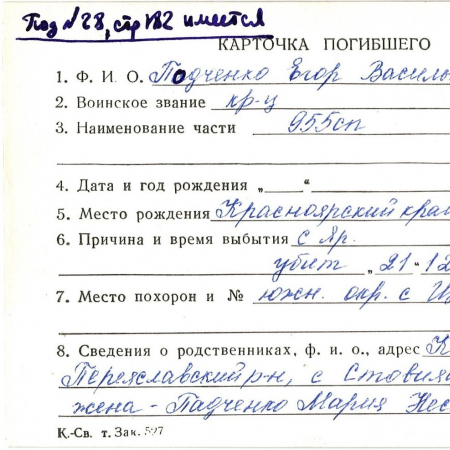 Под № 28, стр 182 имеется
КАРТОЧКА ПОГИБШЕГО
1. Ф. И. О. Подченко Егор Василь
2. Воинское звание кр-ц
3. Наименование части 955сп
4. Дата и год рождения „ “
5. Место рождения Красноярский край
6. Причина и время выбытия с Яр.
убит „21“ 12
7. Место похорон и № южн. окр. с
8. Сведения о родственниках, ф. и о., адрес К
Переяславский р-н, с
жена - Падченко Мария Нес
К.-Св. т. Зак. 527